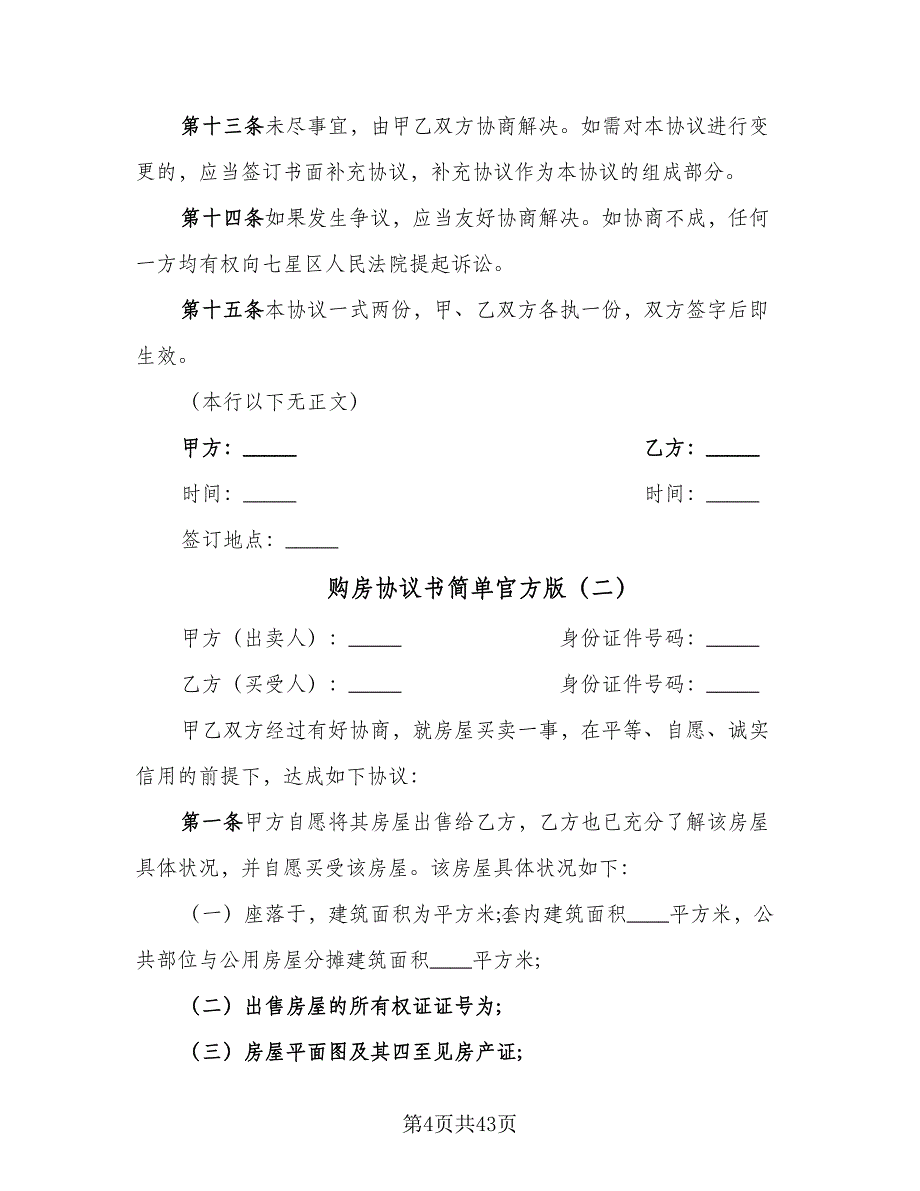 第十三条未尽事宜，由甲乙双方协商解决。如需对本协议进行变
更的，应当签订书面补充协议，补充协议作为本协议的组成部分。
第十四条如果发生争议，应当友好协商解决。如协商不成，任何
一方均有权向七星区人民法院提起诉讼。
第十五条本协议一式两份，甲、乙双方各执一份，双方签字后即
生效。
（本行以下无正文）
甲方：_____ 乙方：_____
时间：_____ 时间：_____
签订地点：_____
购房协议书简单官方版（二）
甲方（出卖人）：_____ 身份证件号码：_____
乙方（买受人）：_____ 身份证件号码：_____
甲乙双方经过有好协商，就房屋买卖一事，在平等、自愿、诚实
信用的前提下，达成如下协议：
第一条甲方自愿将其房屋出售给乙方，乙方也已充分了解该房屋
具体状况，并自愿买受该房屋。该房屋具体状况如下：
（一）座落于，建筑面积为平方米;套内建筑面积____平方米，公
共部位与公用房屋分摊建筑面积____平方米;
（二）出售房屋的所有权证证号为;
（三）房屋平面图及其四至见房产证;
第4页共43页